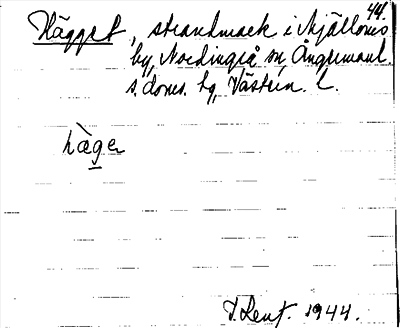 44.
Hägget, strandmark i Mjälloms
by, Nordingrå sn, Ångermanl.
s. doms. hg, Västern. l.
hägen
1944.